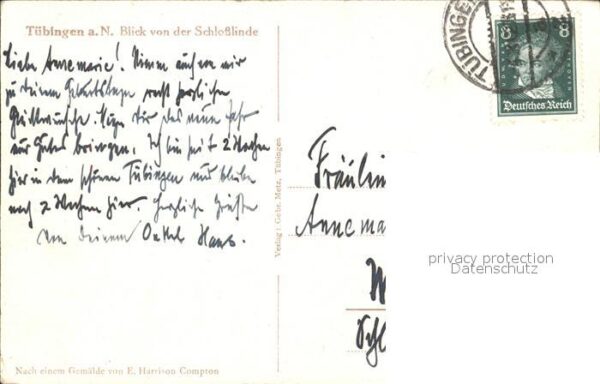 Tübingen a. N. Blick von der Schloßlinde
Liebe Annemarie! Nimm auch von mir
zu Deinem Geburtstage recht herzliche
Glückwünsche. Möge dir das neue Jahr
nur Gutes bringen. Ich bin seit 2 Wochen
hier in dem schönen Tübingen und bleibe
noch 2 Wochen hier. Herzliche Grüße
von Deinem Onkel Hans.
Nach einem Gemälde von E. Harrison Compton
Verlag: Gebr. Metz, Tübingen
TÜBINGEN
8 8
Deutsches Reich
Fräulein
Annema
W
Schl
privacy protection
Datenschutz